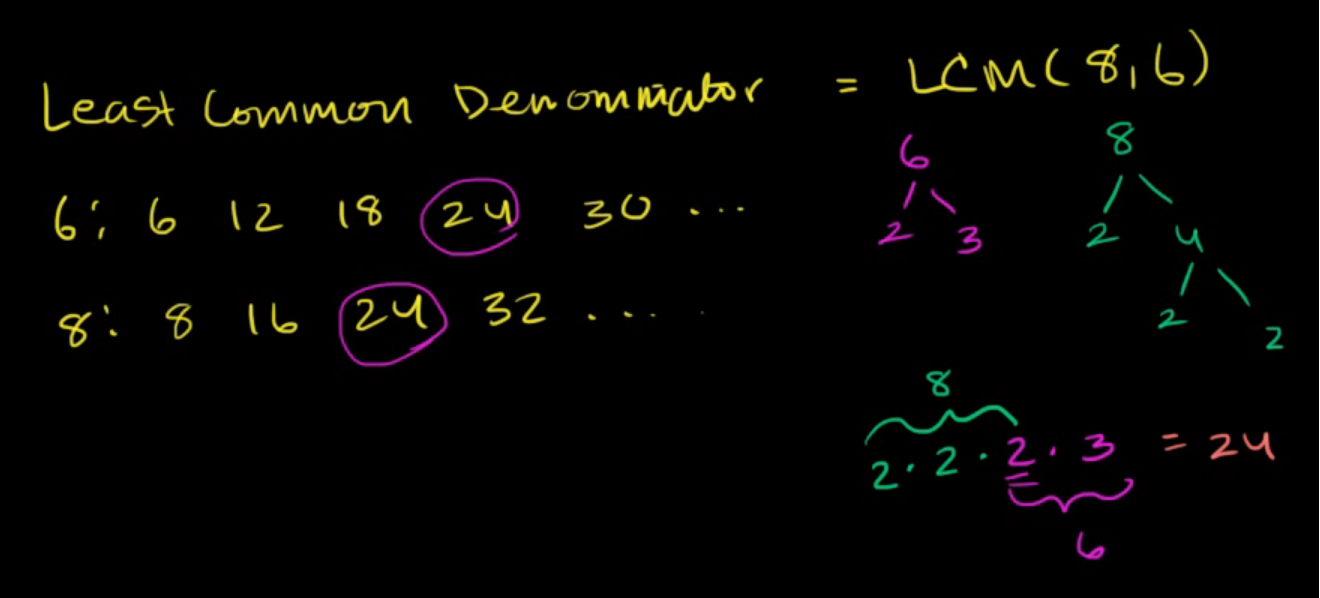 Least Common Denominator = LCM(8,6)
6: 6 12 18 24 30 ...
8: 8 16 24 32 ....
6
2 3
8
2 4
2 2
8
2 · 2 · 2 · 3 = 24
6